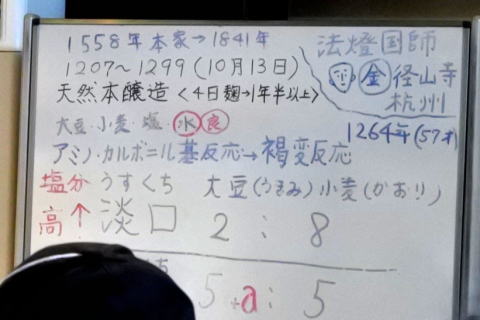 1558年本家→1841年
法燈国師
1207~1299(10月13日)
金 径山寺
天然本醸造<4日麹→1年半以上>
杭州
大豆・小麦・塩・水 良
1264年(57才)
アミノ・カルボニル基反応→褐変反応
塩分 うすくち 大豆(うまみ) 小麦(かおり)
高↑ 淡口 2 : 8
5 +a : 5